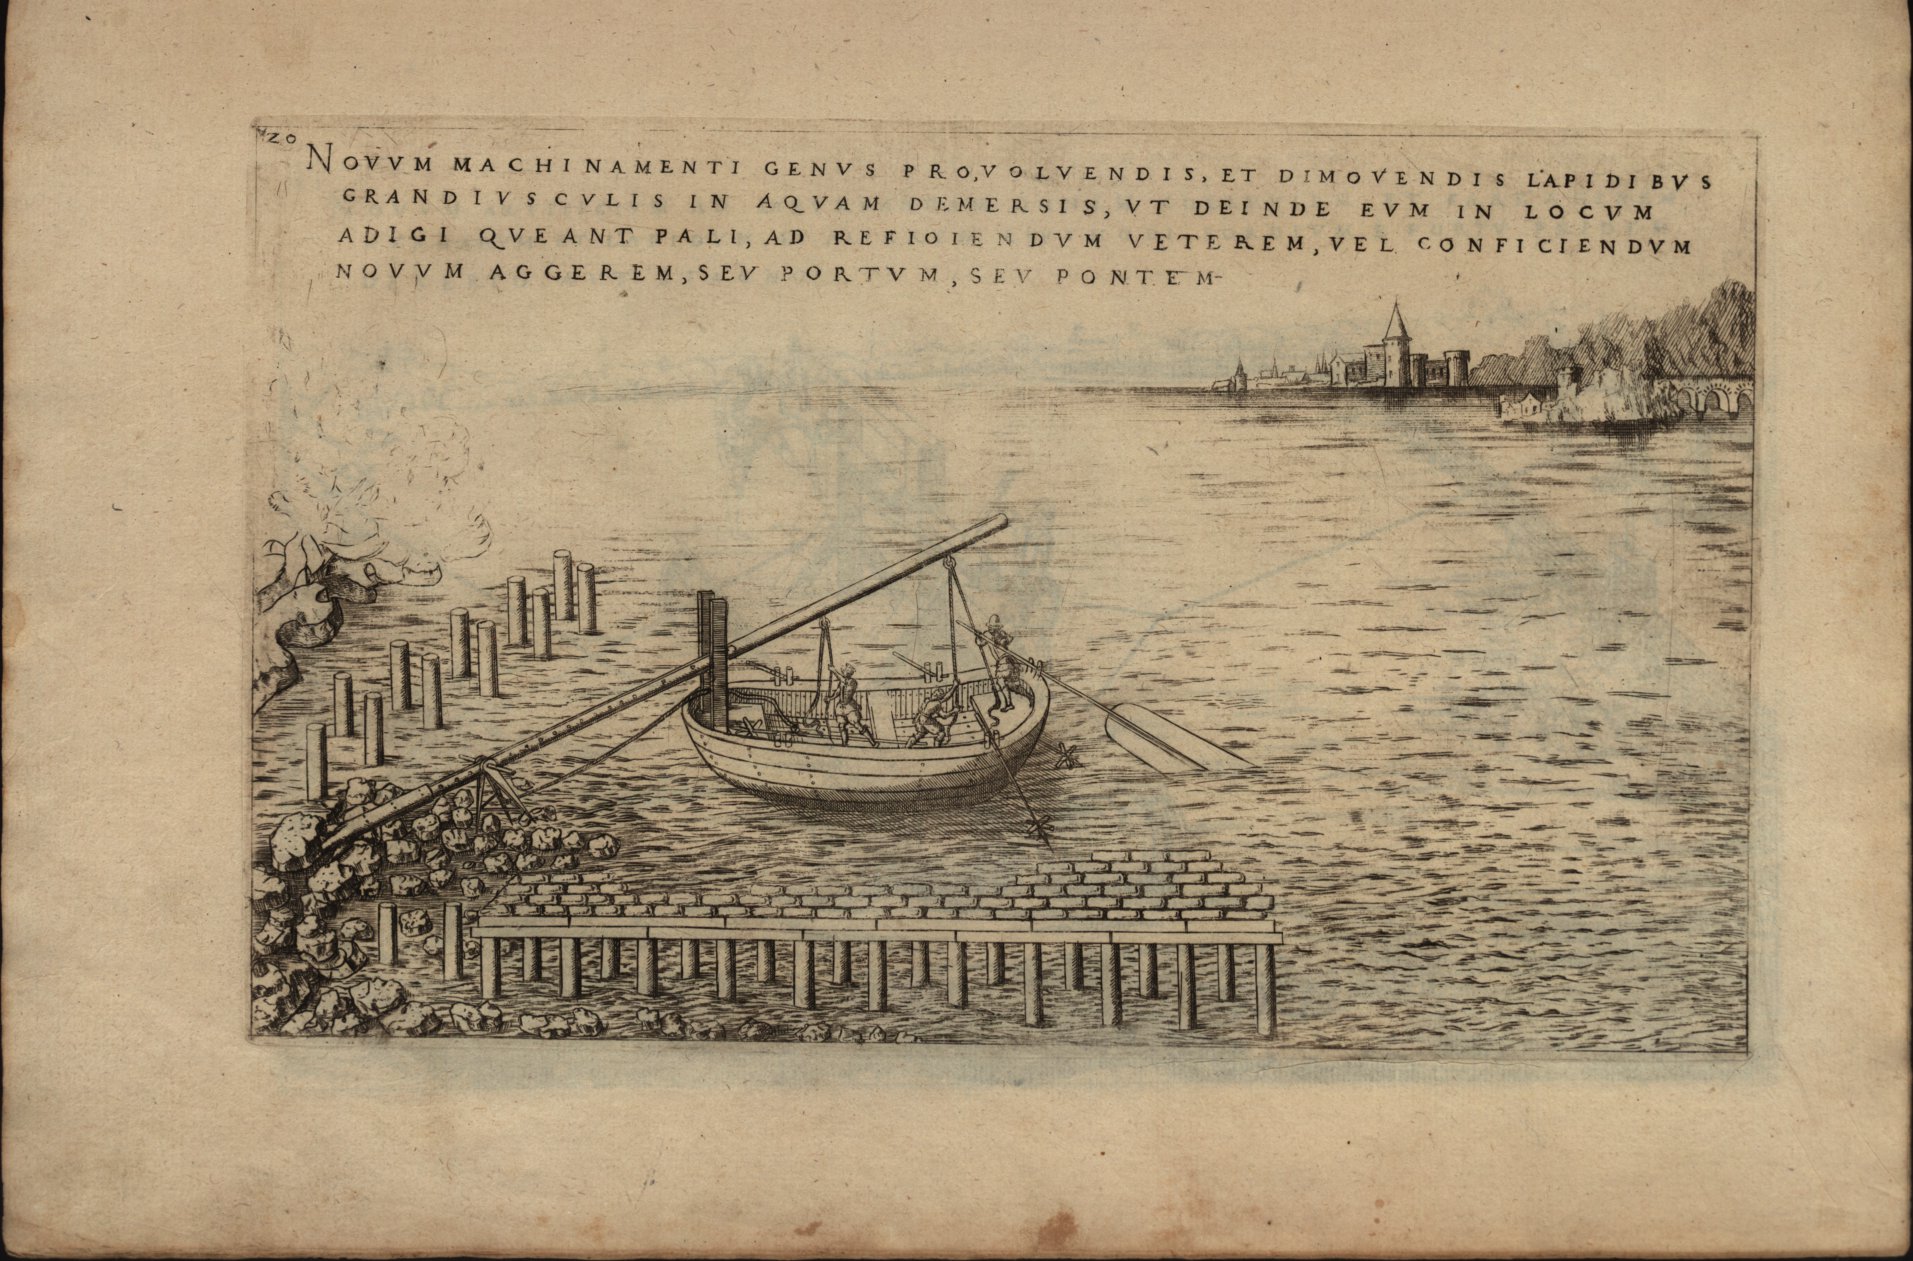 20
NOVVM MACHINAMENTI GENVS PRO,VOLVENDIS, ET DIMOVENDIS LAPIDIBVS
GRANDIVSCVLIS IN AQVAM DEMERSIS, VT DEINDE EVM IN LOCVM
ADIGI QVEANT PALI, AD REFIOIENDVM VETEREM, VEL CONFICIENDVM
NOVVM AGGEREM, SEV PORTVM, SEV PONTEM-